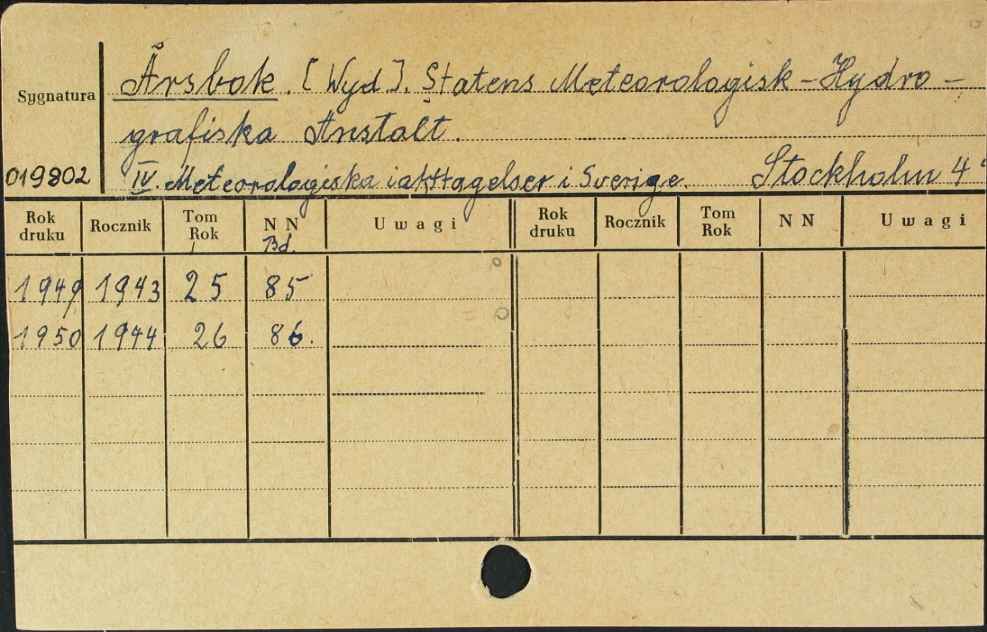 Årsbok. [Wyd]. Statens Meteorologisk-Hydro-
Sygnatura
grafiska Anstalt.
019802 IV. Meteorologiska iakttagelser i Sverige. Stockholm 4°
Rok druku Rocznik Tom Rok NN Bd. Uwagi Rok druku Rocznik Tom Rok NN Uwagi
1949 1943 25 85
1950 1944 26 86.